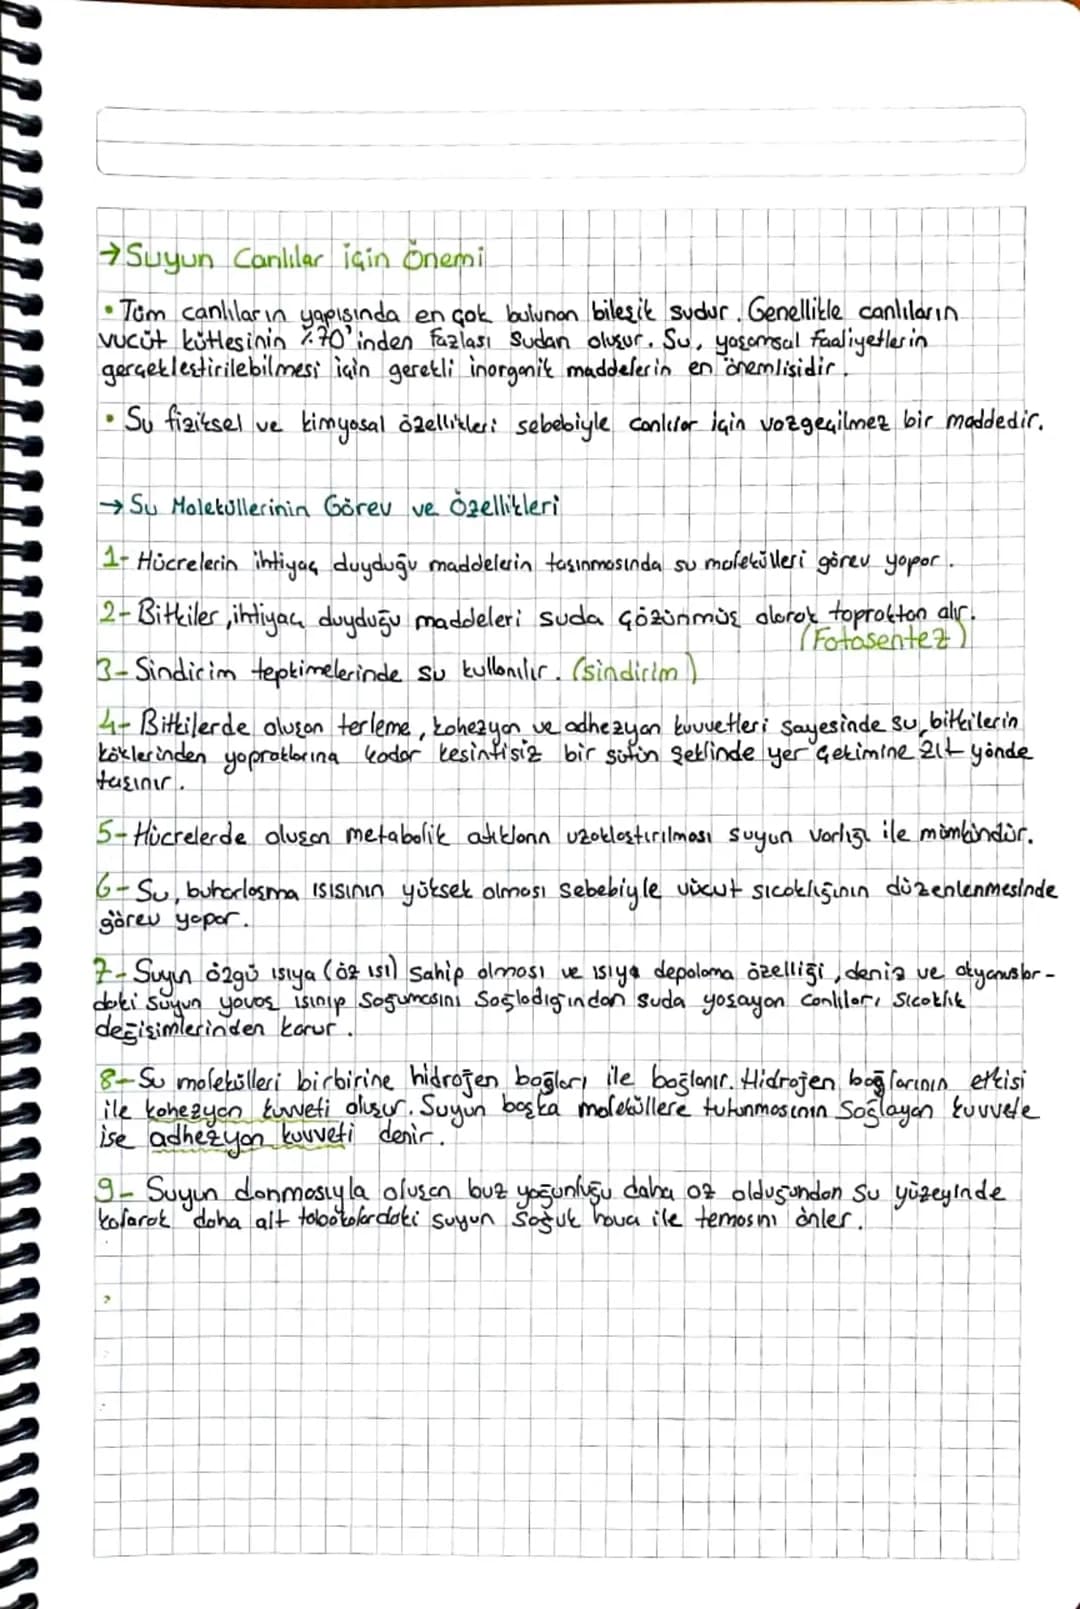 → Suyun Canlılar için Önemi
• Tüm canlıların yapısında en çok bulunan bileşik sudur. Genellikle canlıların
vücüt kütlesinin %70'inden fazlası sudan oluşur. Su, yaşamsal faaliyetlerin
gerçekleştirilebilmesi için gerekli inorganik maddelerin en önemlisidir.
• Su fiziksel ve kimyasal özellikleri sebebiyle canlılar için vazgeçilmez bir maddedir.
→ Su Moleküllerinin Görev ve Özellikleri
1- Hücrelerin ihtiyaç duyduğu maddelerin taşınmasında su molekülleri görev yapar.
2- Bitkiler, ihtiyaç duyduğu maddeleri suda çözünmüş olarak topraktan alır.
(Fotosentez)
3- Sindirim tepkimelerinde su kullanılır. (sindirim)
4- Bitkilerde oluşan terleme, kohezyon ve adhezyon kuvvetleri sayesinde su, bitkilerin
köklerinden yapraklarına kadar kesintisiz bir sütün şeklinde yer çekimine zıt yönde
taşınır.
5- Hücrelerde oluşan metabolik atıkların uzaklaştırılması suyun varlığı ile mümkündür.
6- Su, buharlaşma ısısının yüksek olması sebebiyle vücut sıcaklığının düzenlenmesinde
görev yapar.
7- Suyun özgü ısıya (öz ısı) sahip olması ve ısıya depolama özelliği, deniz ve okyanuslar-
daki suyun yavaş ısınıp soğumasını sağladığından suda yaşayan canlıları sıcaklık
değişimlerinden korur.
8- Su molekülleri birbirine hidrojen bağları ile bağlanır. Hidrojen bağlarının etkisi
ile kohezyon kuvveti oluşur. Suyun başka moleküllere tutunmasının sağlayan kuvvete
ise adhezyon kuvveti denir.
9- Suyun donmasıyla oluşan buz yoğunluğu daha az olduğundan su yüzeyinde
kalarak daha alt tabakalardaki suyun soğuk hava ile temasını önler.